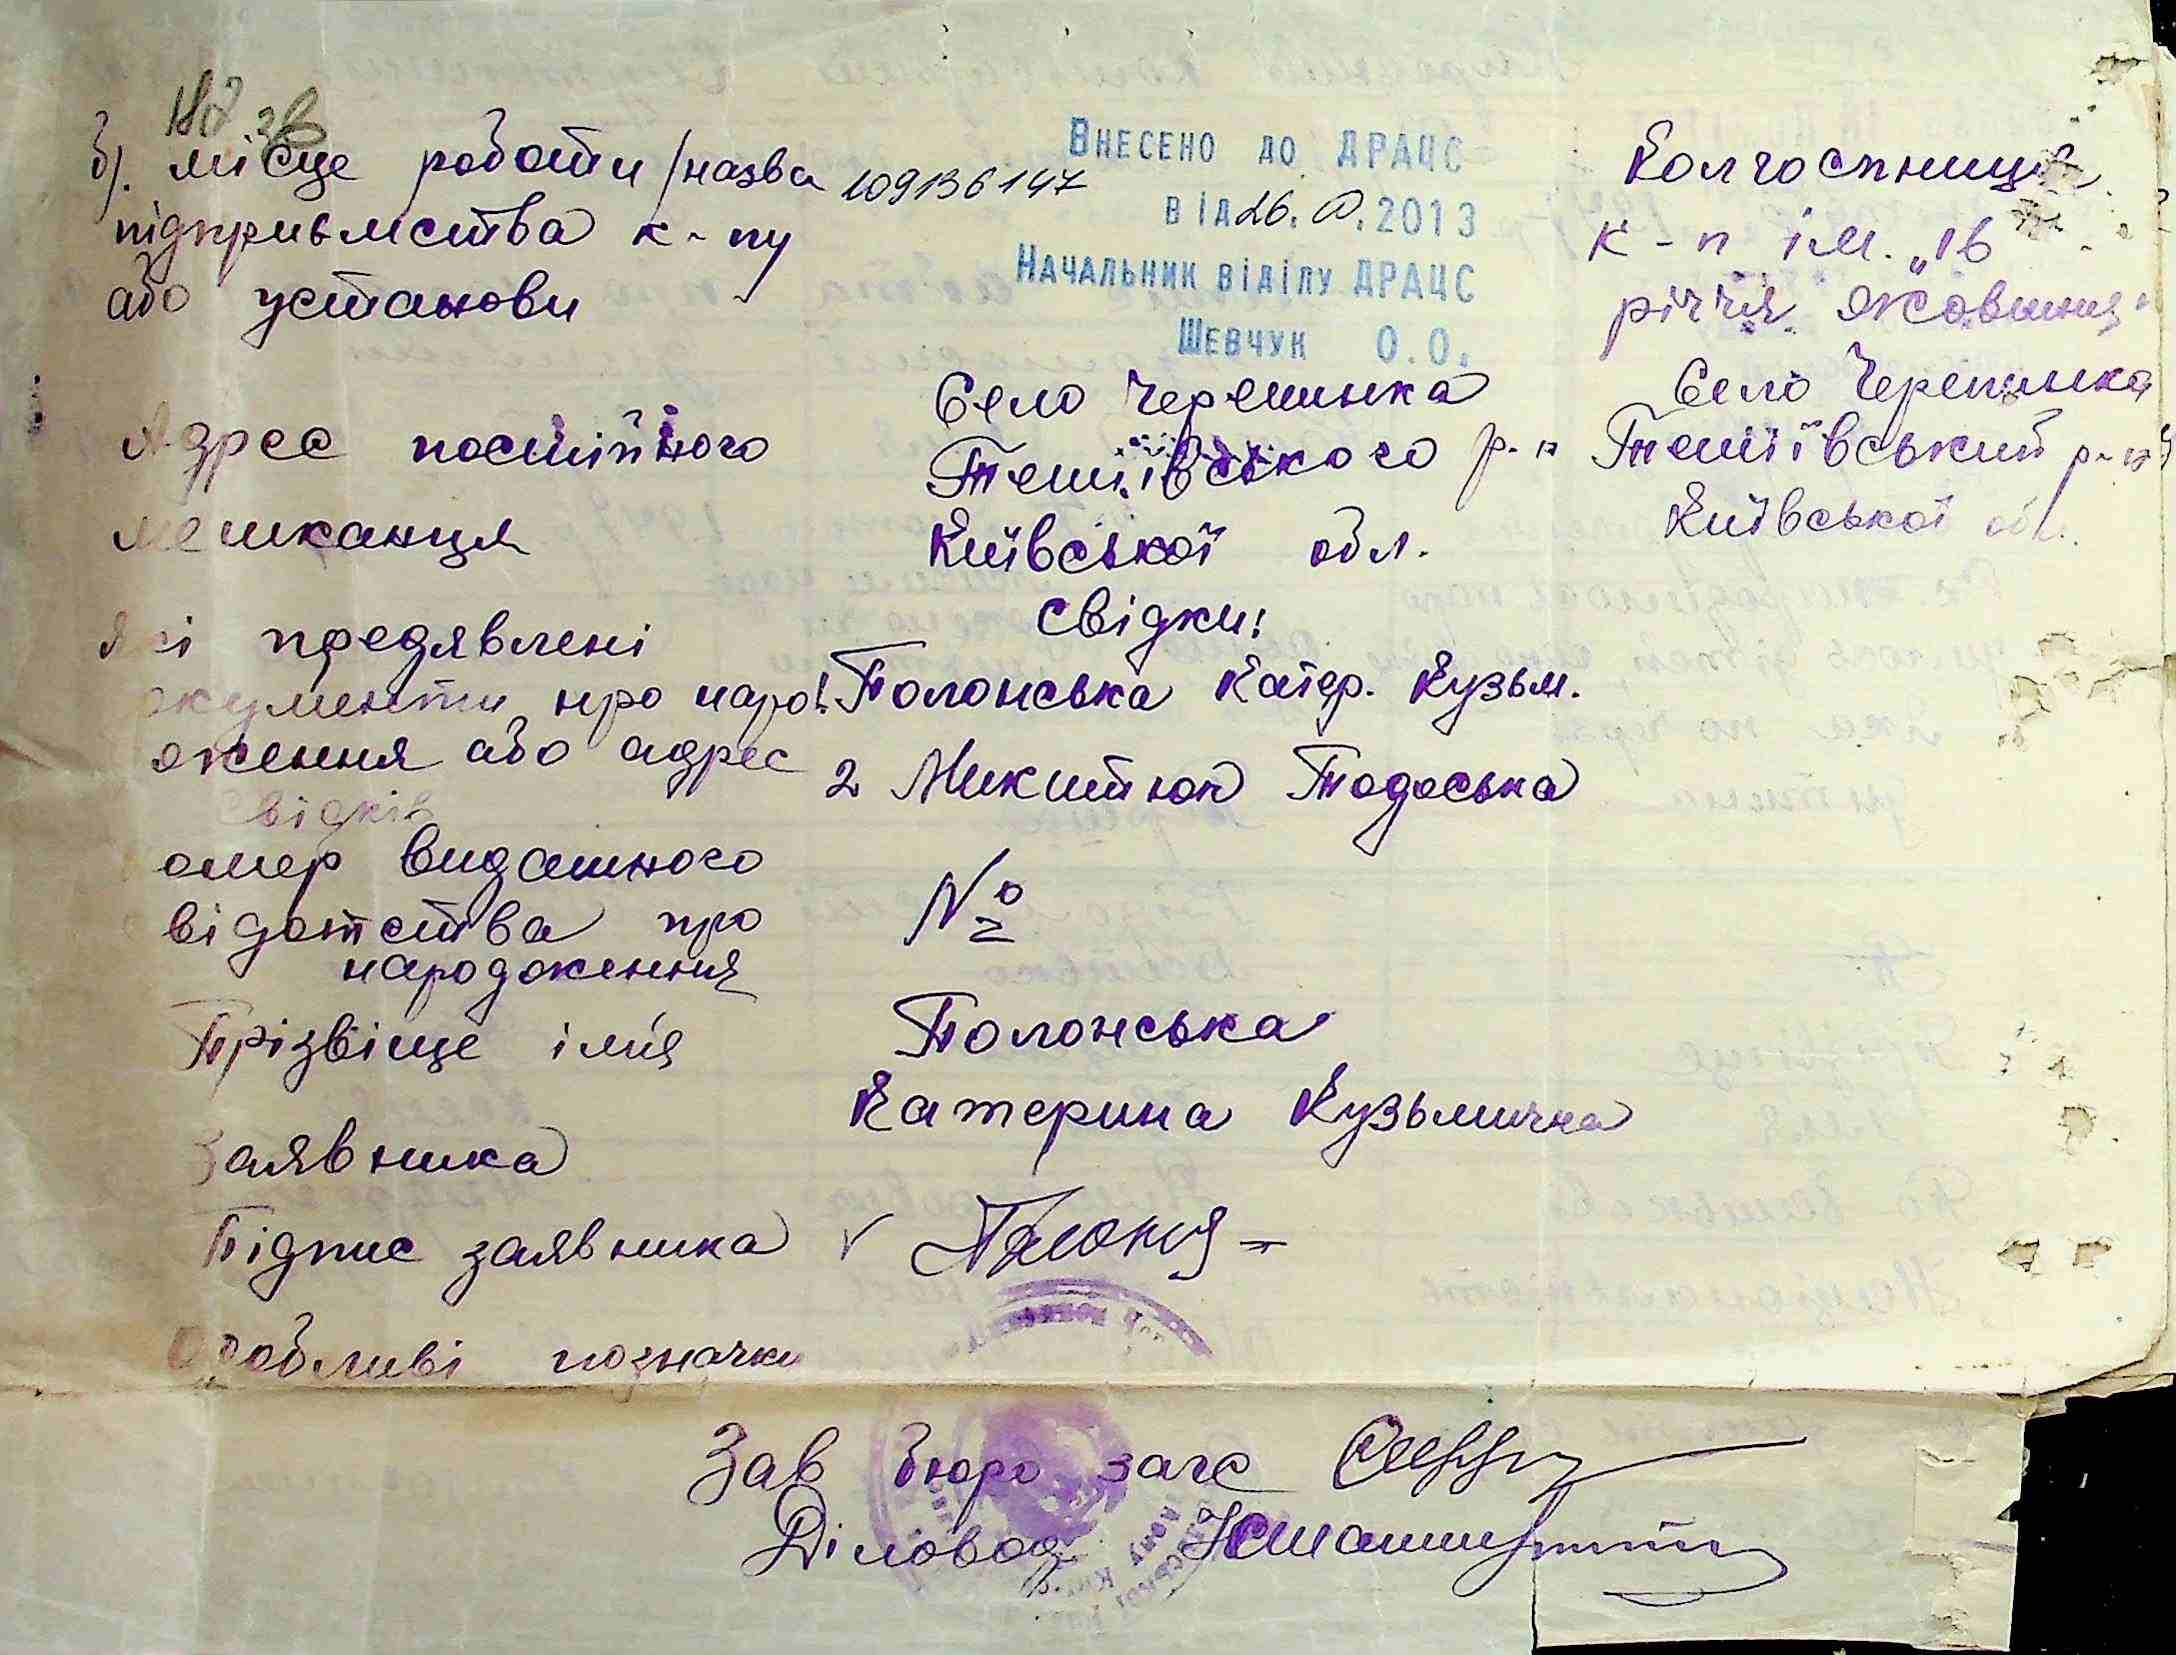 б). місце роботи /назва
підприємства к-пу
або установи
109136147
Внесено до ДРАЦС
від 26. 2013
Начальник відділу ДРАЦС
Шевчук О.О.
Колгоспниця
к-п ім. „16
річчя жовтня"
Адрес постійного
мешканця
Село Черепинка
Тетіївського р-н
Київської обл.
Село Черепинка
Тетіївський р-н
Київської обл.
Які предявлені
документи про наро
ження або адрес
свідків
Свідки:
1. Полонська Катер. Кузьм.
2 Микитюк Тодоська
омер виданного
відотства про
народження
№
Прізвіще імя
заявника
Полонська
Катерина Кузьмична
Підпис заявника v
Особливі позначки
Зав бюро загс
Діловод